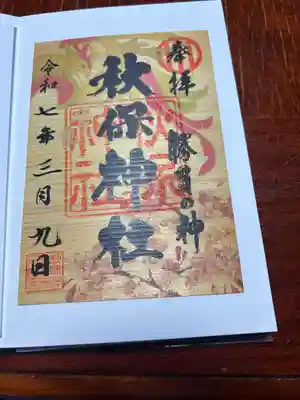 奉拝
勝負の神
秋保神社
令和七年三月九日